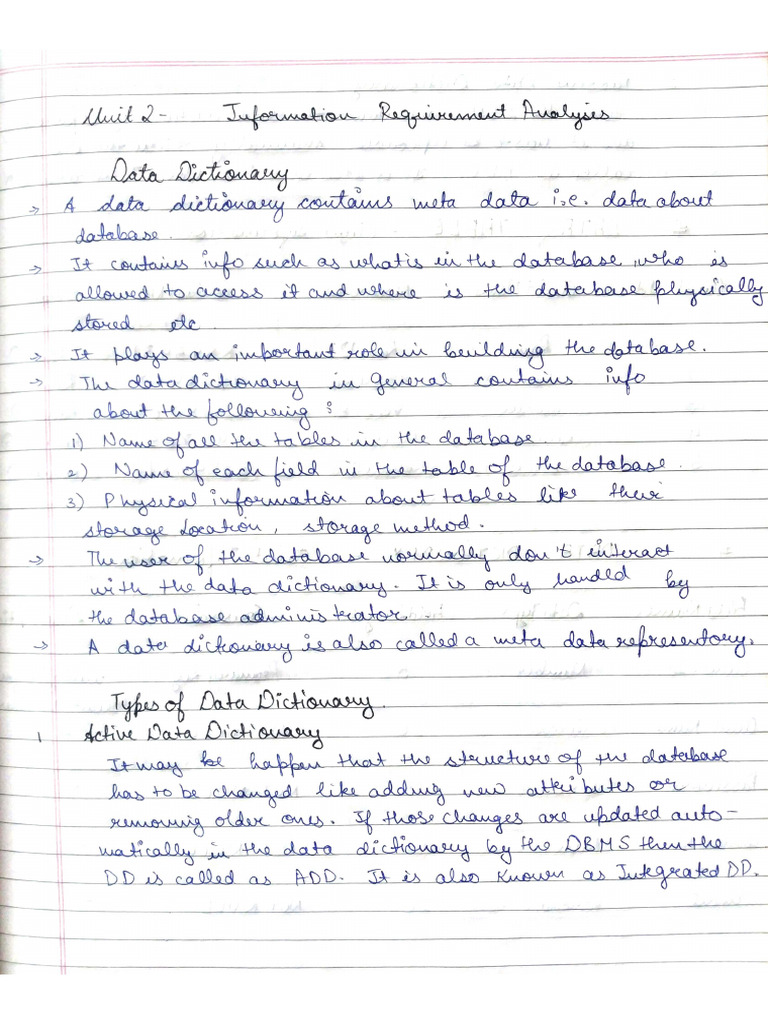 Unit 2- Information Requirement Analysis
Data Dictionary
→ A data dictionary contains meta data i.e. data about
database.
→ It contains info such as what is in the database, who is
allowed to access it and where is the database physically
stored etc.
→ It plays an important role in building the database.
→ The data dictionary in general contains info
about the following :
1) Name of all the tables in the database.
2) Name of each field in the table of the database.
3) Physical information about tables like their
storage location, storage method.
→ The user of the database normally don't interact
with the data dictionary. It is only handled by
the database administrator.
→ A data dickonary is also called a meta data representory.
Types of Data Dictionary.
1 Active Data Dictionary
It may be happen that the structure of the database
has to be changed like adding new attributes or
removing older ones. If those changes are updated auto-
matically in the data dictionary by the DBMS then the
DD is called as ADD. It is also known as Integrated DD.